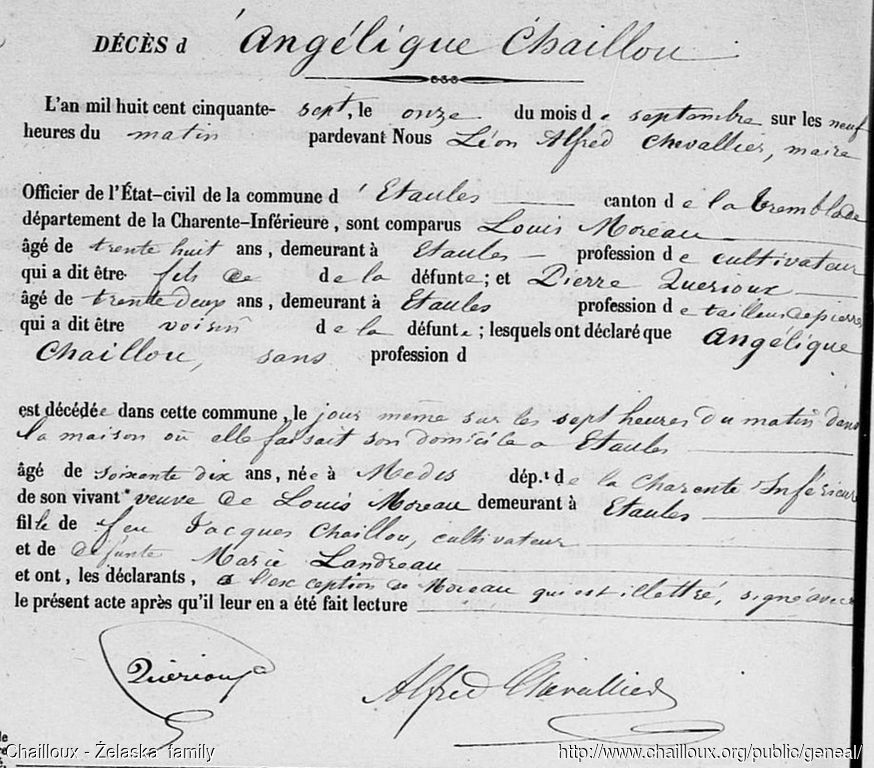 DÉCÈS d'Angélique Chaillou
L'an mil huit cent cinquante-sept, le onze du mois de septembre sur les neuf
heures du matin pardevant Nous Léon Alfred Chevallier, maire
Officier de l'État-civil de la commune d'Etaules canton de la Tremblade
département de la Charente-Inférieure, sont comparus Louis Moreau
âgé de trente huit ans, demeurant à Etaules profession de cultivateur
qui a dit être fils de de la défunte; et Pierre Querioux
âgé de trente deux ans, demeurant à Etaules profession de tailleur de pierres
qui a dit être voisin de la défunte; lesquels ont déclaré que Angélique
Chaillou, sans profession d
est décédée dans cette commune, le jour même sur les sept heures du matin dans
la maison où elle faisait son domicile a Etaules
âgé de soixante dix ans, née à Medis dép.t de la Charente Inférieure
de son vivant veuve de Louis Moreau demeurant à Etaules
fille de feu Jacques Chaillou, cultivateur
et de défunte Marie Landreau
et ont, les déclarants, a l'exception de Moreau qui est illettré, signé avec
le présent acte après qu'il leur en a été fait lecture
Quérioux
Alfred Chevallier
Chailloux - Želaska family
http://www.chailloux.org/public/geneal/